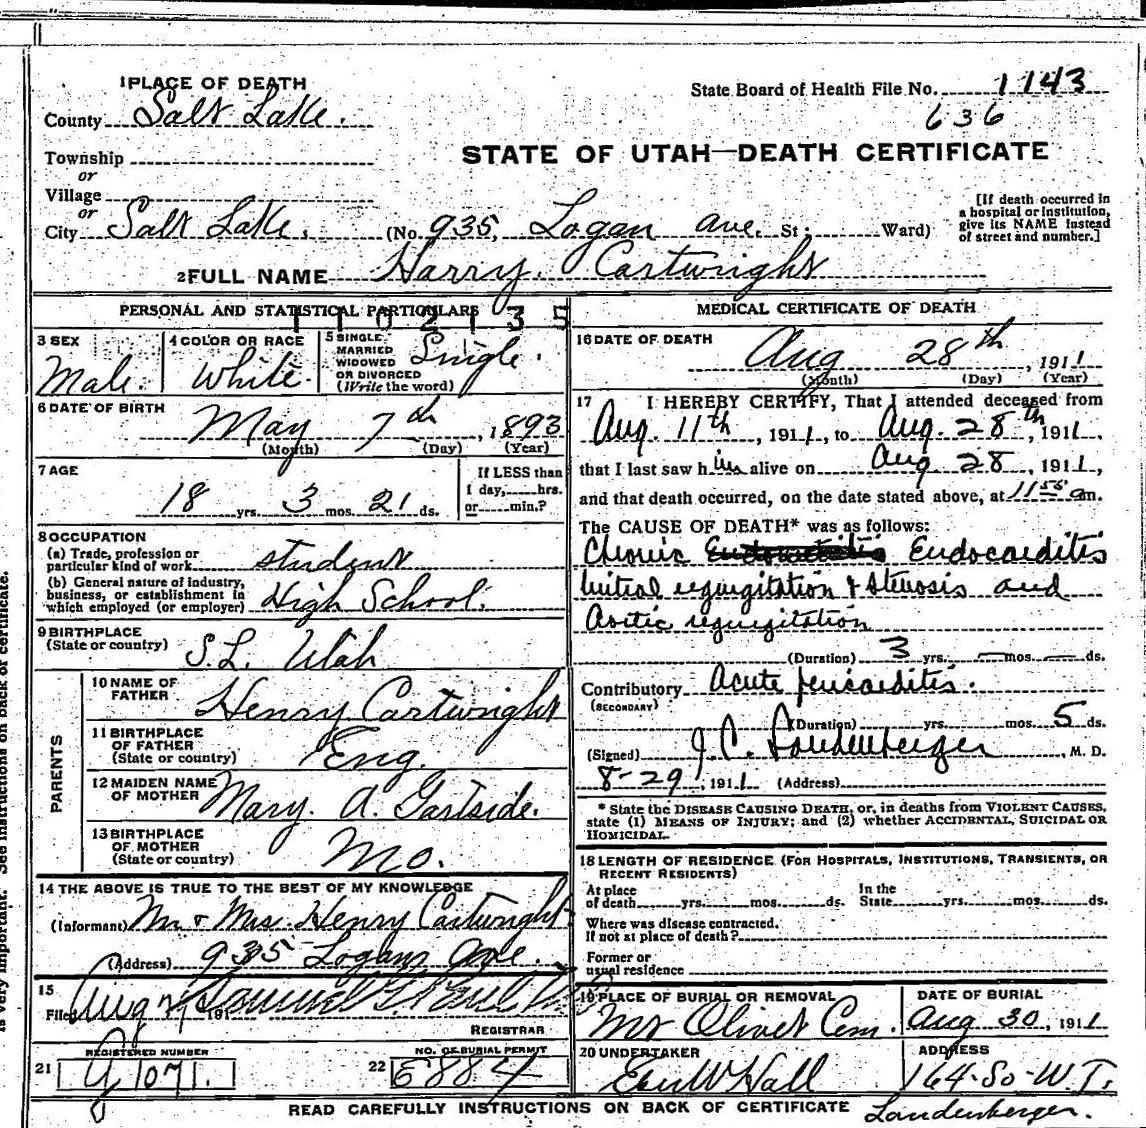 1 PLACE OF DEATH
County Salt Lake.
Township
or
Village
or
City Salt Lake. (No. 935, Logan Ave. St; Ward)
State Board of Health File No. 1143
636
STATE OF UTAH—DEATH CERTIFICATE
[If death occurred in
a hospital or institution,
give its NAME instead
of street and number.]
2 FULL NAME Harry. Cartwright
PERSONAL AND STATISTICAL PARTICULARS
1102135
3 SEX
Male.
4 COLOR OR RACE
White.
5 SINGLE,
MARRIED
WIDOWED
OR DIVORCED
(Write the word)
Single.
6 DATE OF BIRTH
May 7th, 1893
(Month) (Day) (Year)
7 AGE
18 yrs. 3 mos. 21 ds.
If LESS than
1 day, hrs.
or min.?
8 OCCUPATION
(a) Trade, profession or
particular kind of work student
(b) General nature of industry,
business, or establishment in
which employed (or employer) High School.
9 BIRTHPLACE
(State or country) S.L. Utah
PARENTS
10 NAME OF
FATHER Henry Cartwright
11 BIRTHPLACE
OF FATHER
(State or country) Eng.
12 MAIDEN NAME
OF MOTHER Mary. A. Gartside.
13 BIRTHPLACE
OF MOTHER
(State or country) Mo.
14 THE ABOVE IS TRUE TO THE BEST OF MY KNOWLEDGE
(Informant) Mr & Mrs. Henry Cartwright
(Address) 935 Logan Ave.
15
Filed Aug 191
REGISTRAR
21 REGISTERED NUMBER
1071.
22 NO. OF BURIAL PERMIT
5884
MEDICAL CERTIFICATE OF DEATH
16 DATE OF DEATH
Aug 28th, 1911
(Month) (Day) (Year)
17 I HEREBY CERTIFY, That I attended deceased from
Aug. 11th, 1911, to Aug. 28th, 1911.
that I last saw him alive on Aug 28, 1911,
and that death occurred, on the date stated above, at 11 55 am.
The CAUSE OF DEATH* was as follows:
Chronic Endocarditis
Mitral regurgitation & stenosis and
Aortic regurgitation
(Duration) 3 yrs. — mos. — ds.
Contributory Acute pericarditis.
(SECONDARY)
(Duration) yrs. mos. 5 ds.
(Signed) J. C. Landenberger M. D.
8-29, 1911 (Address)
* State the DISEASE CAUSING DEATH, or, in deaths from VIOLENT CAUSES,
state (1) MEANS OF INJURY; and (2) whether ACCIDENTAL, SUICIDAL OR
HOMICIDAL.
18 LENGTH OF RESIDENCE (FOR HOSPITALS, INSTITUTIONS, TRANSIENTS, OR
RECENT RESIDENTS)
At place
of death yrs. mos. ds.
In the
State yrs. mos. ds.
Where was disease contracted.
If not at place of death?
Former or
usual residence
19 PLACE OF BURIAL OR REMOVAL
Mt Olivet Cem.
DATE OF BURIAL
Aug 30, 1911
20 UNDERTAKER
Eber W Hall
ADDRESS
164-So-W.T.
READ CAREFULLY INSTRUCTIONS ON BACK OF CERTIFICATE
Landenberger.
is very important. See instructions on back of certificate.